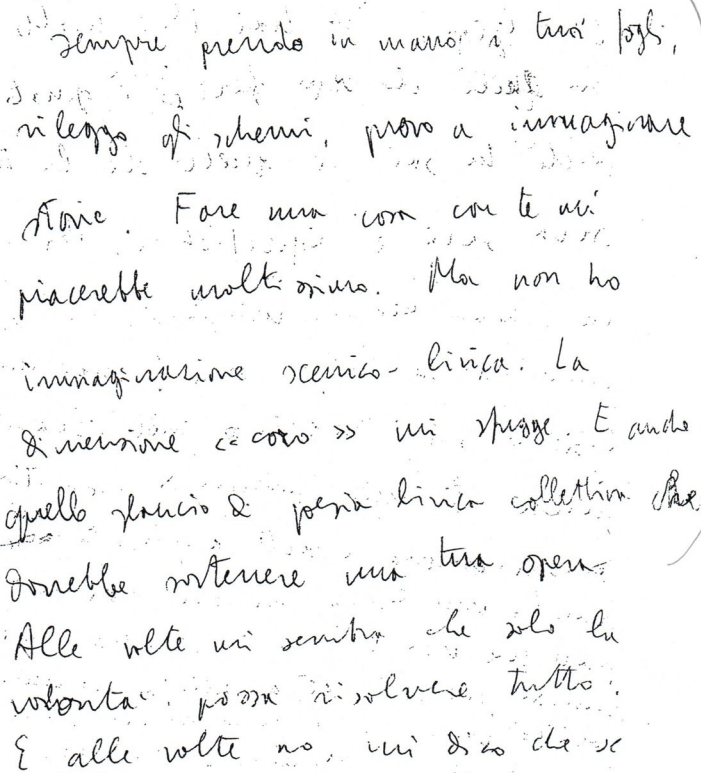 sempre prendo in mano i tuoi fogli,
rileggo gli schemi, provo a immaginare
storie. Fare una cosa con te mi
piacerebbe moltissimo. Ma non ho
immaginazione scenico-lirica. La
dimensione «coro» mi sfugge. E anche
quello slancio di poesia lirica collettiva che
dovrebbe sostenere una tua opera.
Alle volte mi sembra che solo la
volontà possa risolvere tutto.
E alle volte no, mi dico che se